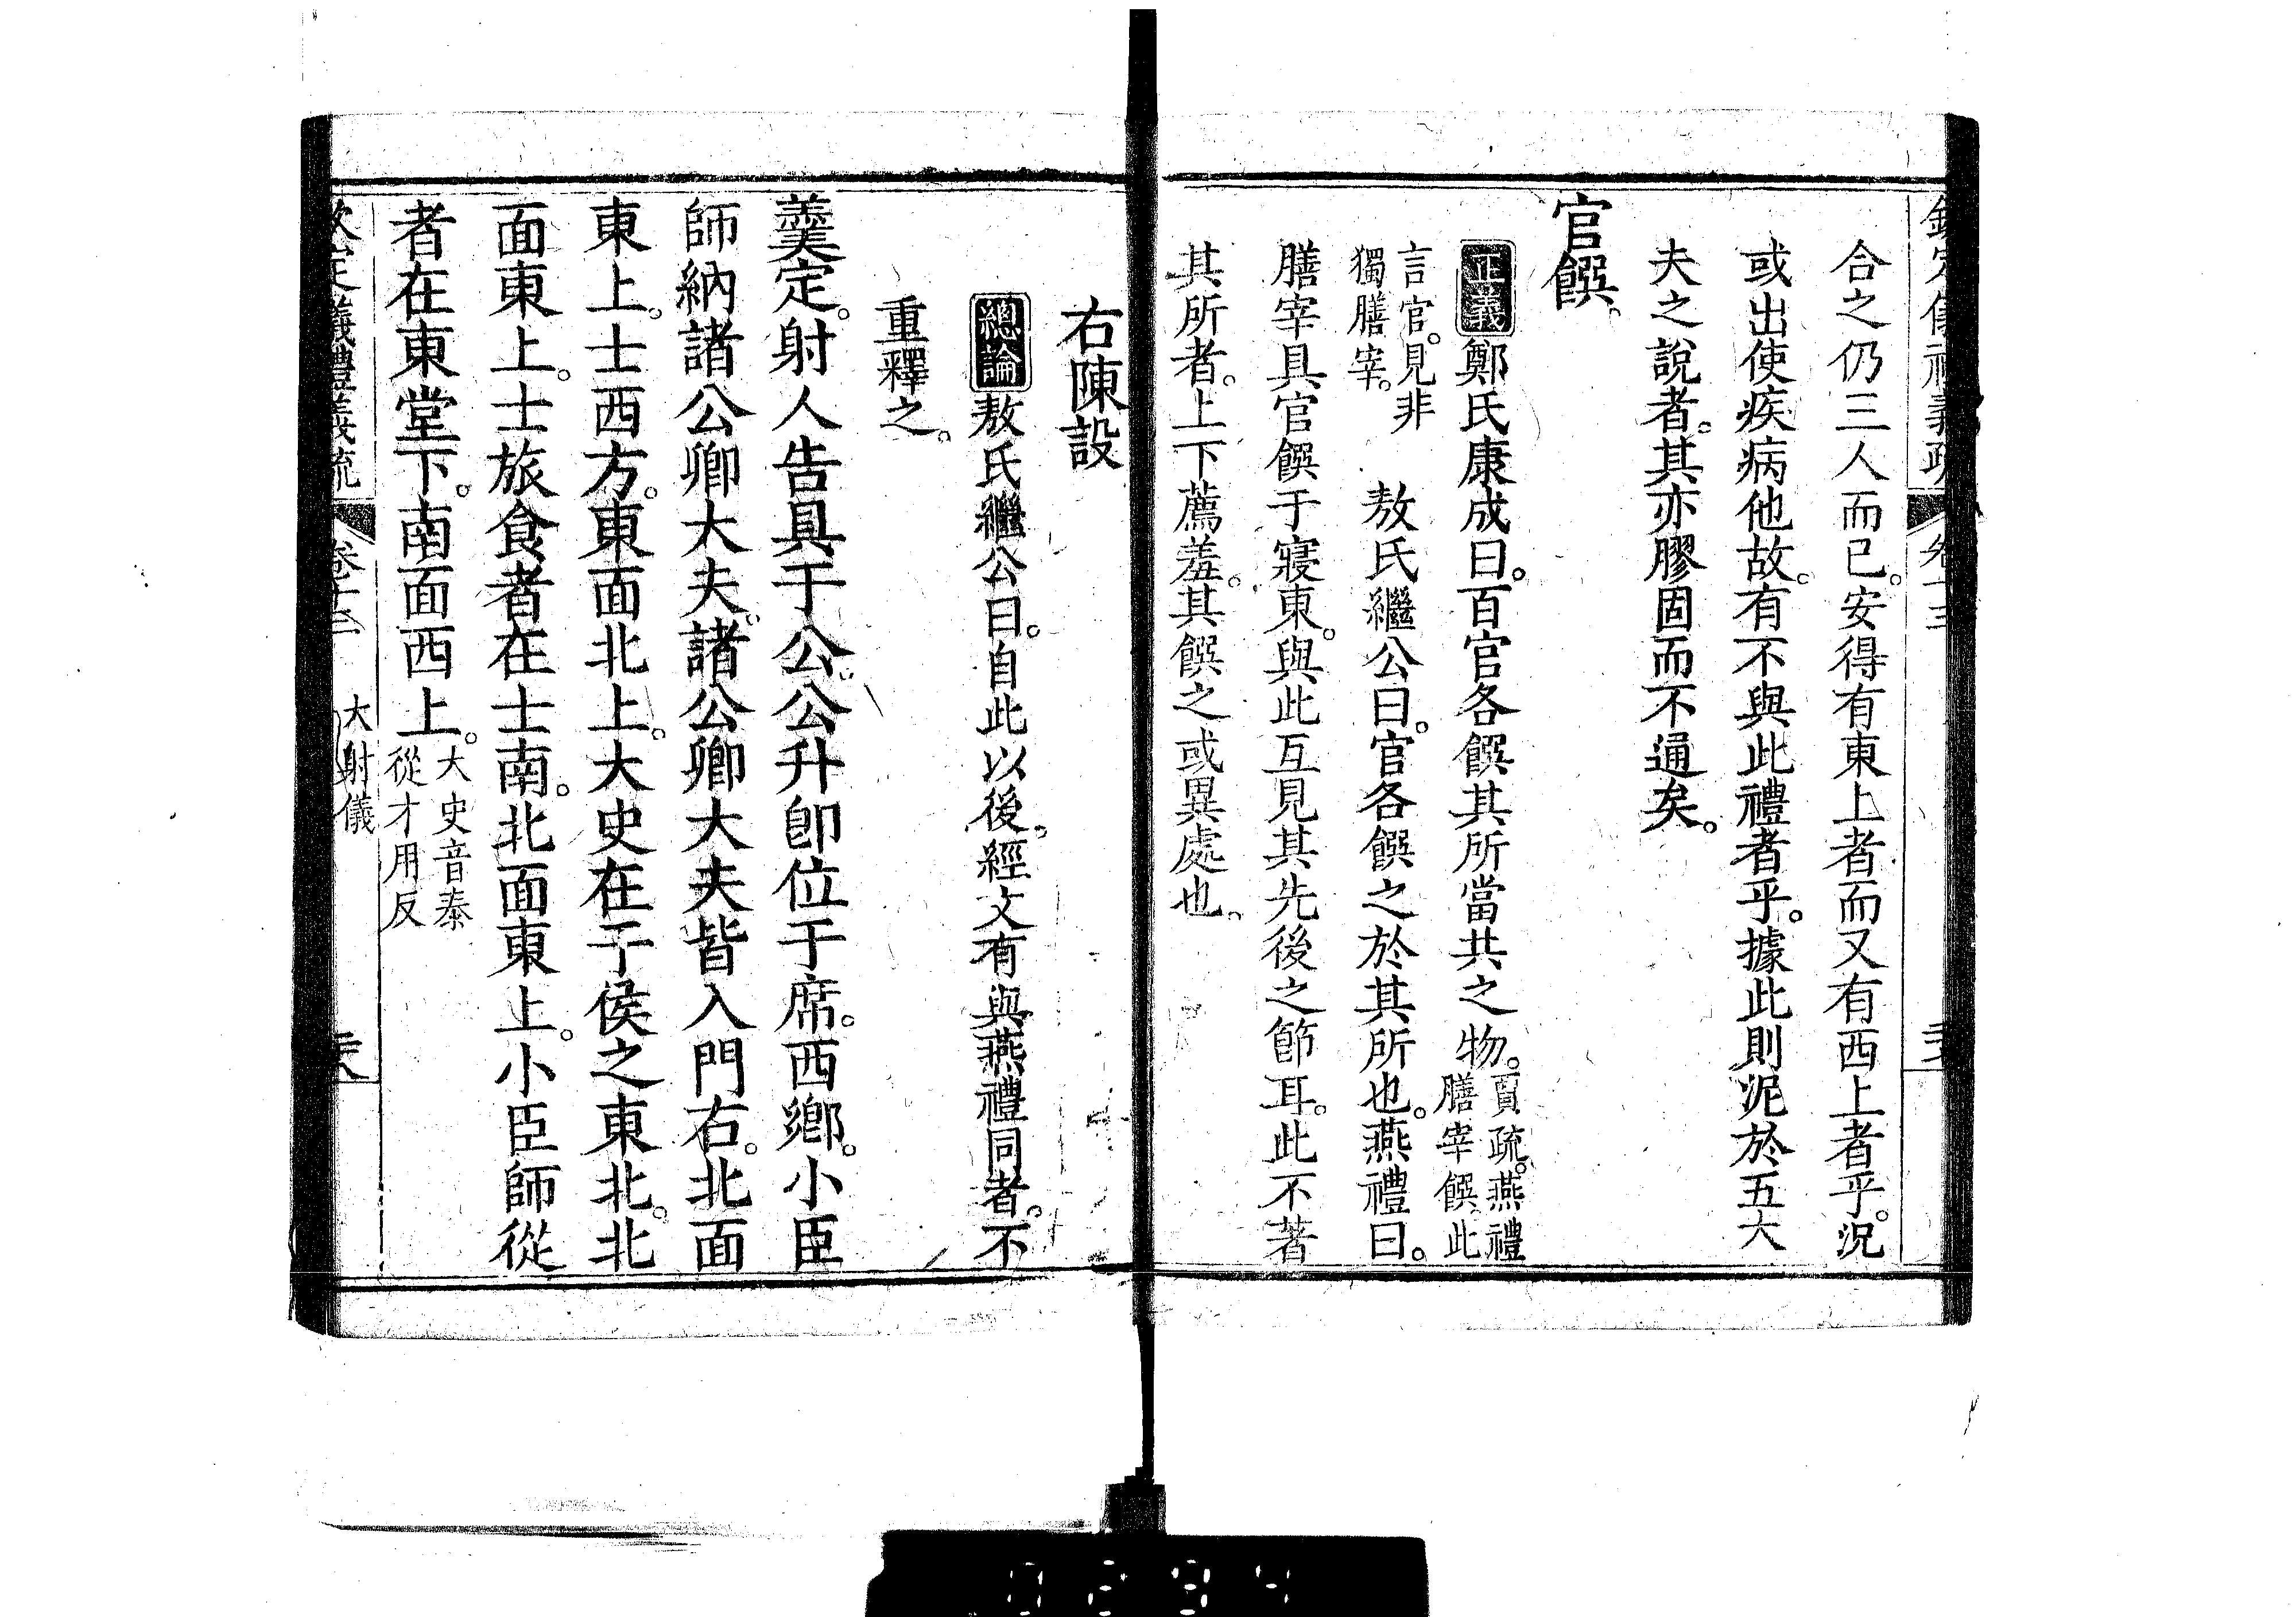 合之仍三人而已。安得有東上者而又有西上者乎。況
或出使疾病他故。有不與此禮者乎。據此則泥於五大
夫之說者。其亦膠固而不通矣。
官饌。
正義鄭氏康成曰。百官各饌其所當共之物。賈疏。燕禮膳宰饌。此
言官。見非獨膳宰。敖氏繼公曰。官各饌之於其所也。燕禮曰。
膳宰具官饌于寢東。與此互見其先後之節耳。此不著
其所者。上下薦羞。其饌之或異處也。
右陳設
總論敖氏繼公曰。自此以後。經文有與燕禮同者。不
重釋之。
羹定。射人告具于公。公升卽位于席。西鄉。小臣
師納諸公卿大夫。諸公卿大夫皆入門右。北面
東上。士西方。東面北上。大史在干侯之東北。北
面東上。士旅食者在士南。北面東上。小臣師從
者在東堂下。南面西上。大史音泰從才用反
欽定儀禮義疏 卷十三 大射儀